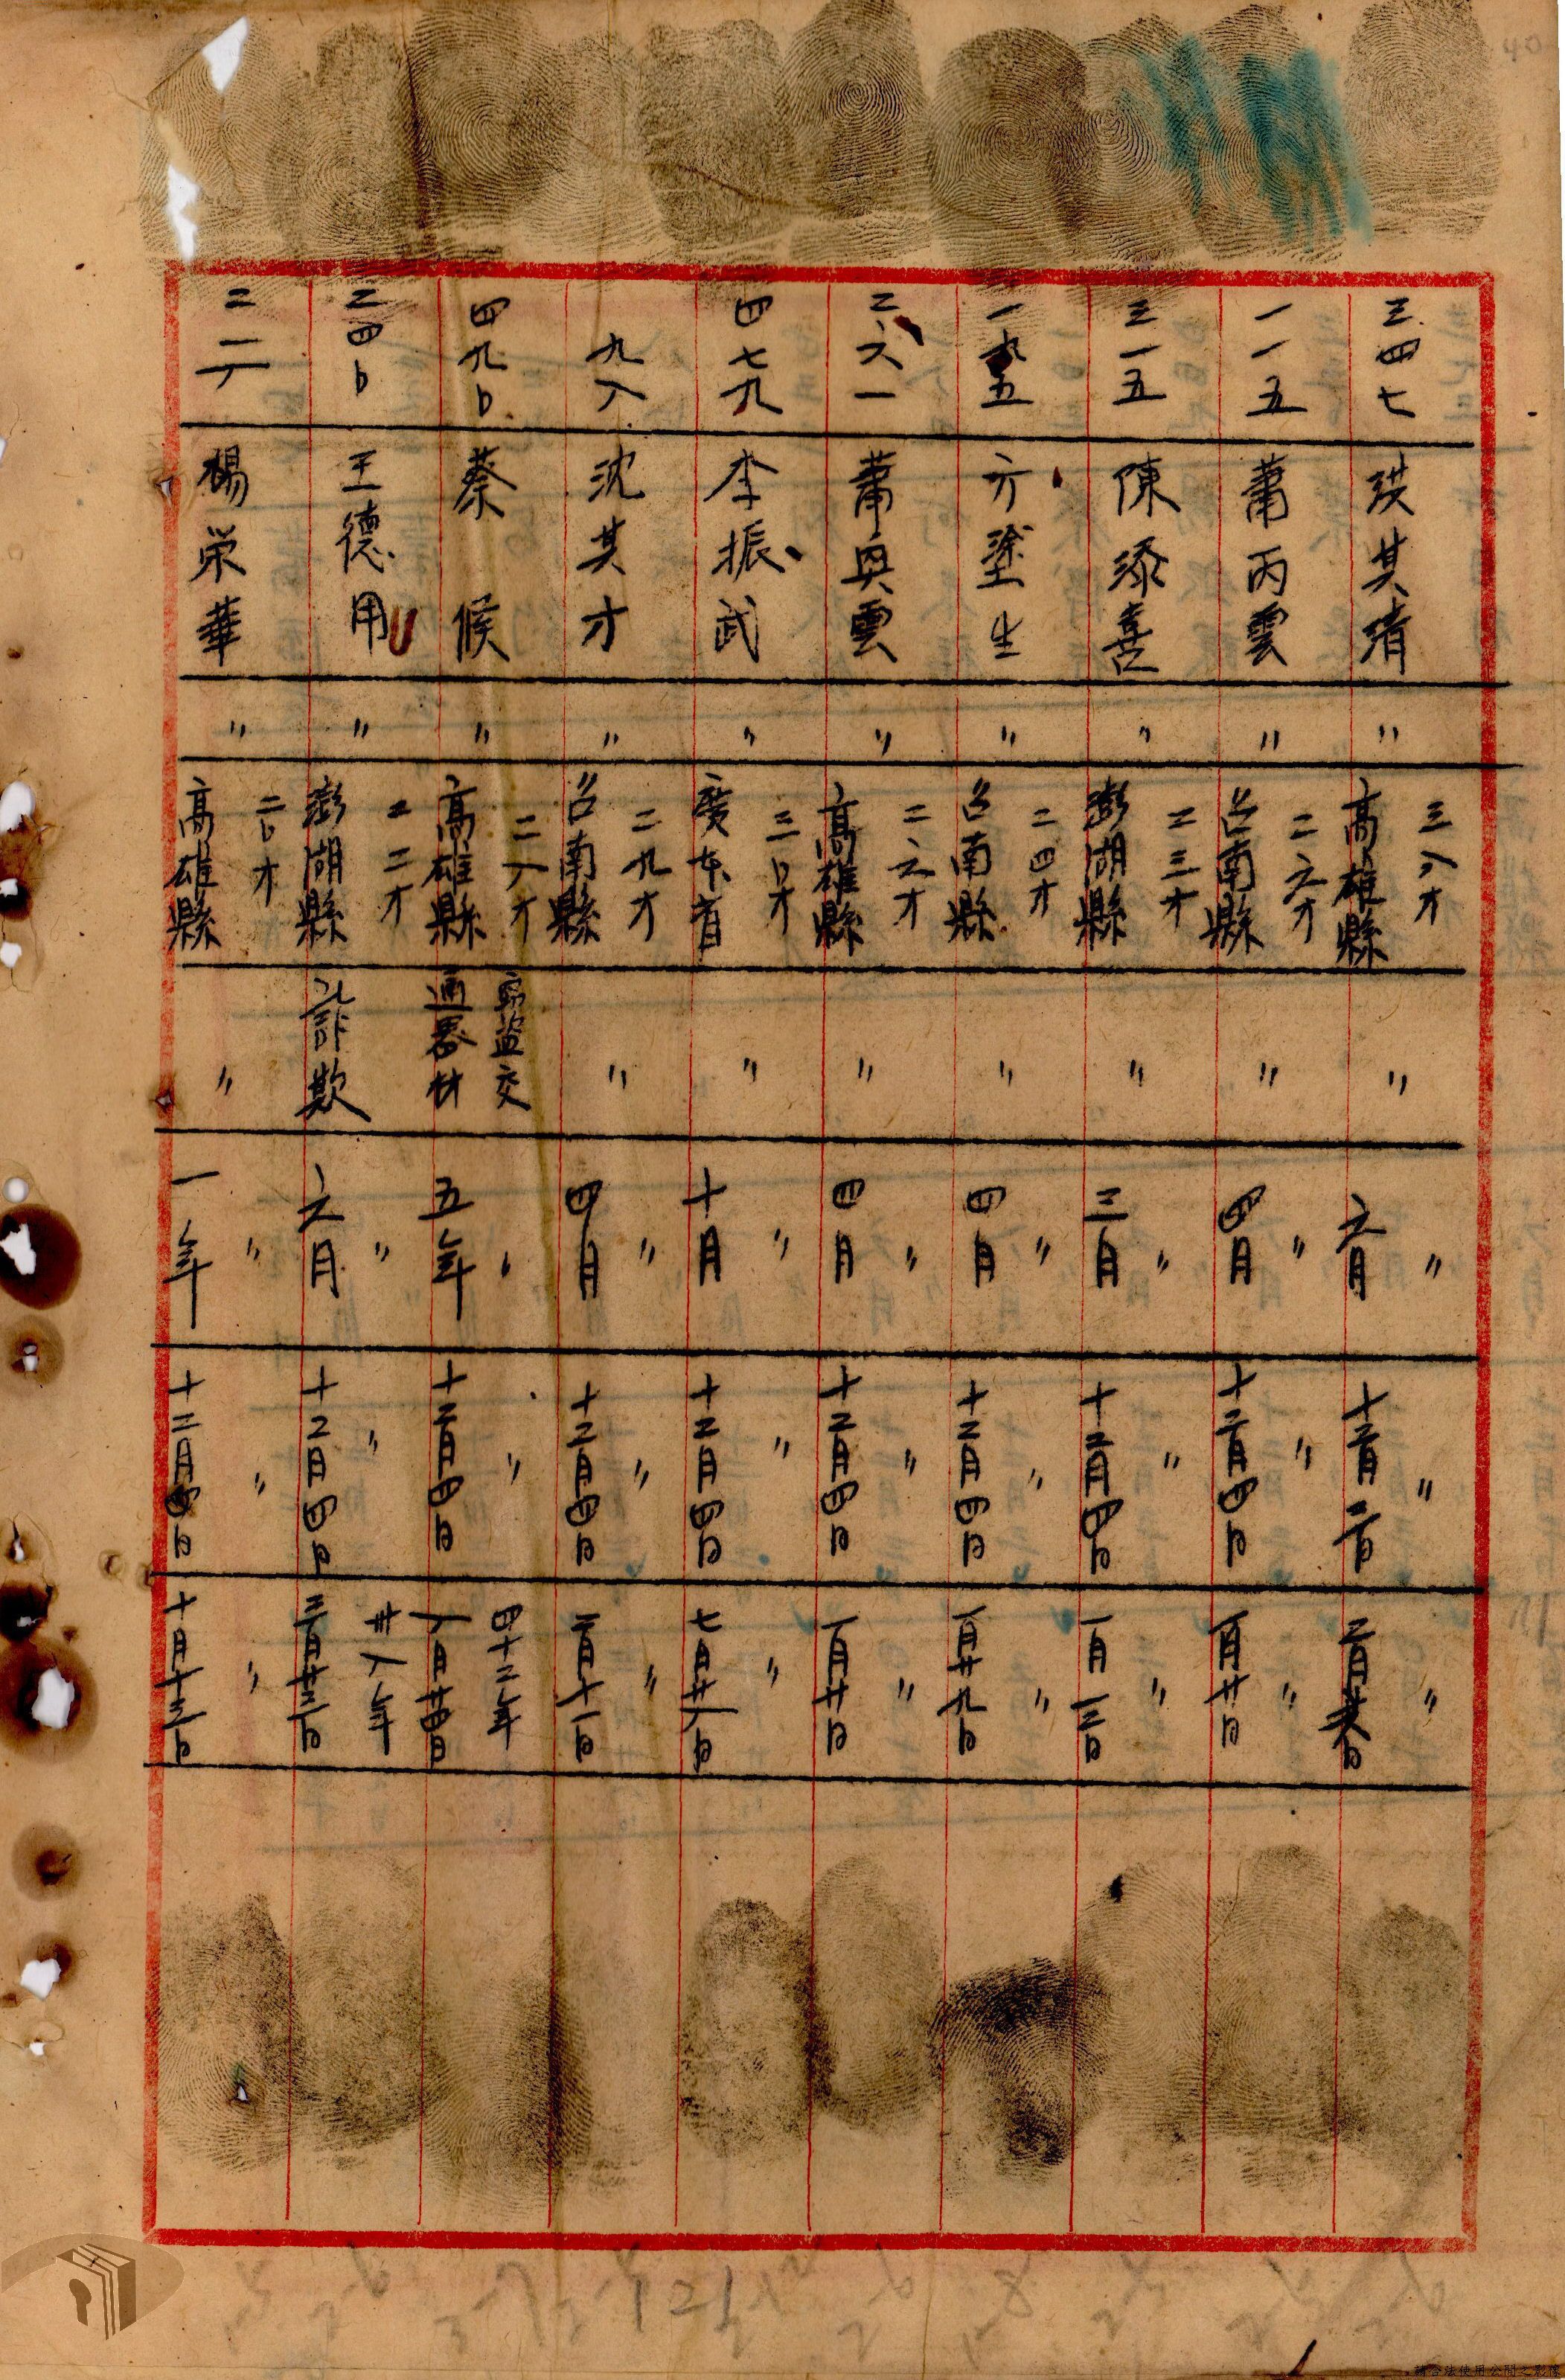 三四七 洪其清 〃 三八才 高雄縣 〃 〃 六月 〃 十二月二日 〃 二月廿八日
一一五 蕭丙雲 〃 二六才 台南縣 〃 〃 四月 〃 十二月四日 〃 一月廿日
三一五 陳添喜 〃 二三才 澎湖縣 〃 〃 三月 〃 十二月四日 〃 一月一三日
一九五 方塗生 〃 二四才 台南縣 〃 〃 四月 〃 十二月四日 〃 一月廿九日
二六一 蕭興雲 〃 二六才 高雄縣 〃 〃 四月 〃 十二月四日 〃 一月廿日
四七九 李振武 〃 三0才 廣东省 〃 〃 十月 〃 十二月四日 〃 七月廿八日
九八 沈其才 〃 二九才 台南縣 〃 〃 四月 〃 十二月四日 〃 二月十一日
四九0 蔡候 〃 二八才 高雄縣 竊盜交通器材 〃 五年 〃 十二月四日 四十二年 八月廿四日
二四0 王德用 〃 二二才 澎湖縣 詐欺 〃 六月 〃 十二月四日 卅八年 三月廿三日
二一八 楊栄華 〃 二0才 高雄縣 〃 〃 一年 〃 十二月四日 〃 十月十三日